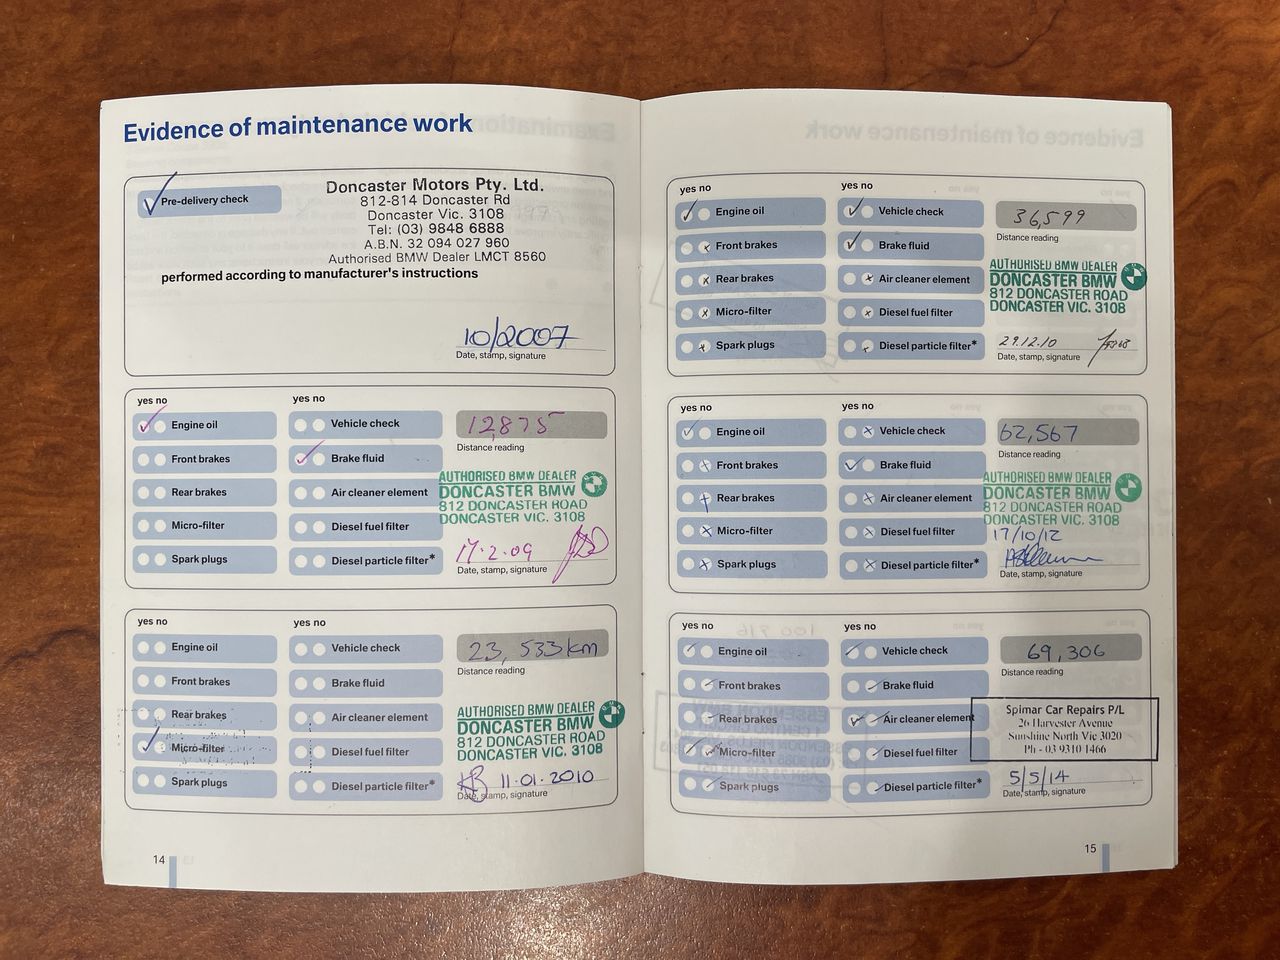 Evidence of maintenance work
Pre-delivery check
Doncaster Motors Pty. Ltd.
812-814 Doncaster Rd
Doncaster Vic. 3108
Tel: (03) 9848 6888
A.B.N. 32 094 027 960
Authorised BMW Dealer LMCT 8560
performed according to manufacturer's instructions
10/2007
Date, stamp, signature
yes no
yes no
Engine oil
Vehicle check
12,875
Distance reading
Front brakes
Brake fluid
Rear brakes
Air cleaner element
Micro-filter
Diesel fuel filter
Spark plugs
Diesel particle filter*
AUTHORISED BMW DEALER
DONCASTER BMW
812 DONCASTER ROAD
DONCASTER VIC. 3108
17.2.09
Date, stamp, signature
yes no
yes no
Engine oil
Vehicle check
23,533km
Distance reading
Front brakes
Brake fluid
Rear brakes
Air cleaner element
Micro-filter
Diesel fuel filter
Spark plugs
Diesel particle filter*
AUTHORISED BMW DEALER
DONCASTER BMW
812 DONCASTER ROAD
DONCASTER VIC. 3108
11.01.2010
Date, stamp, signature
14
yes no
yes no
Engine oil
Vehicle check
36,599
Distance reading
Front brakes
Brake fluid
Rear brakes
Air cleaner element
Micro-filter
Diesel fuel filter
Spark plugs
Diesel particle filter*
AUTHORISED BMW DEALER
DONCASTER BMW
812 DONCASTER ROAD
DONCASTER VIC. 3108
29.12.10
Date, stamp, signature
yes no
yes no
Engine oil
Vehicle check
62,567
Distance reading
Front brakes
Brake fluid
Rear brakes
Air cleaner element
Micro-filter
Diesel fuel filter
Spark plugs
Diesel particle filter*
AUTHORISED BMW DEALER
DONCASTER BMW
812 DONCASTER ROAD
DONCASTER VIC. 3108
17/10/12
Date, stamp, signature
yes no
yes no
Engine oil
Vehicle check
69,306
Distance reading
Front brakes
Brake fluid
Rear brakes
Air cleaner element
Micro-filter
Diesel fuel filter
Spark plugs
Diesel particle filter*
Spimar Car Repairs P/L
26 Harvester Avenue
Sunshine North Vic 3020
Ph - 03 9310 1466
5/5/14
Date, stamp, signature
15